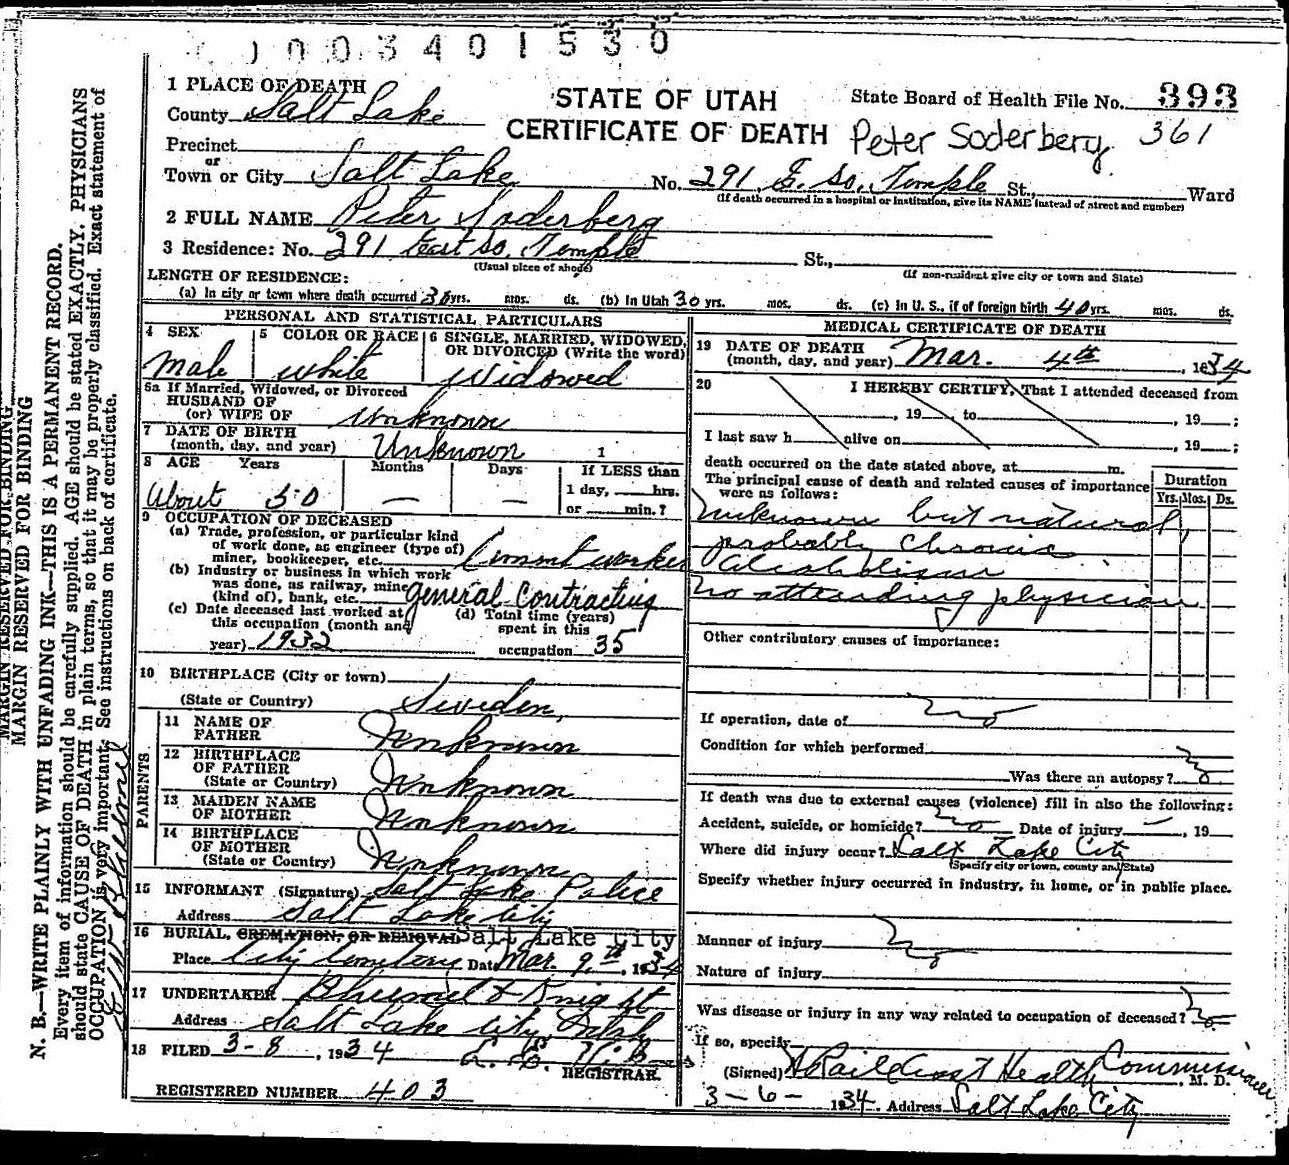 0003401530
1 PLACE OF DEATH
STATE OF UTAH
CERTIFICATE OF DEATH
State Board of Health File No. 393
Peter Soderberg 361
County Salt Lake
Precinct
or
Town or City Salt Lake No. 291 E. So. Temple St., Ward
(If death occurred in a hospital or institution, give its NAME instead of street and number)
2 FULL NAME Peter Soderberg
3 Residence: No. 291 East So. Temple St.,
(Usual place of abode) (If non-resident give city or town and State)
LENGTH OF RESIDENCE:
(a) In city or town where death occurred 30 yrs. mos. ds. (b) In Utah 30 yrs. mos. ds. (c) In U. S., if of foreign birth 40 yrs. mos. ds.
PERSONAL AND STATISTICAL PARTICULARS
4 SEX Male
5 COLOR OR RACE white
6 SINGLE, MARRIED, WIDOWED, OR DIVORCED (Write the word) Widowed
6a If Married, Widowed, or Divorced
HUSBAND OF
(or) WIFE OF Unknown
7 DATE OF BIRTH
(month, day, and year) Unknown 1
8 AGE Years Months Days If LESS than
About 50 — — 1 day, hrs.
or min.?
9 OCCUPATION OF DECEASED
(a) Trade, profession, or particular kind
of work done, as engineer (type of)
miner, bookkeeper, etc. Cement worker
(b) Industry or business in which work
was done, as railway, mine
(kind of), bank, etc. General Contracting
(c) Date deceased last worked at
this occupation (month and
year) 1932
(d) Total time (years)
spent in this
occupation 35
10 BIRTHPLACE (City or town)
(State or Country) Sweden,
PARENTS
11 NAME OF
FATHER Unknown
12 BIRTHPLACE
OF FATHER
(State or Country) Unknown
13 MAIDEN NAME
OF MOTHER Unknown
14 BIRTHPLACE
OF MOTHER
(State or Country) Unknown
15 INFORMANT (Signature) Salt Lake Police
Address Salt Lake City
16 BURIAL, CREMATION, OR REMOVAL Salt Lake City
Place City Cemetery Date Mar. 9th, 1934
17 UNDERTAKER Knight
Address Salt Lake City Utah
18 FILED 3-8, 1934
REGISTRAR.
REGISTERED NUMBER 403
MEDICAL CERTIFICATE OF DEATH
19 DATE OF DEATH
(month, day, and year) Mar. 4th, 1934
20 I HEREBY CERTIFY, That I attended deceased from
, 19 to , 19 ;
I last saw h alive on , 19 ;
death occurred on the date stated above, at m.
The principal cause of death and related causes of importance
were as follows:
Duration
Yrs. Mos. Ds.
Unknown but natural,
probably Chronic
Alcoholism
No attending physician
Other contributory causes of importance:
If operation, date of no
Condition for which performed
Was there an autopsy? no
If death was due to external causes (violence) fill in also the following:
Accident, suicide, or homicide? no Date of injury — , 19
Where did injury occur? Salt Lake City
(Specify city or town, county and State)
Specify whether injury occurred in industry, in home, or in public place.
Manner of injury no
Nature of injury
Was disease or injury in any way related to occupation of deceased? no
If so, specify
(Signed) Health Commissioner, M. D.
3-6-1934. Address Salt Lake City
MARGIN RESERVED FOR BINDING
MARGIN RESERVED FOR BINDING
N. B.—WRITE PLAINLY WITH UNFADING INK—THIS IS A PERMANENT RECORD.
Every item of information should be carefully supplied. AGE should be stated EXACTLY. PHYSICIANS
should state CAUSE OF DEATH in plain terms, so that it may be properly classified. Exact statement of
OCCUPATION is very important. See instructions on back of certificate.